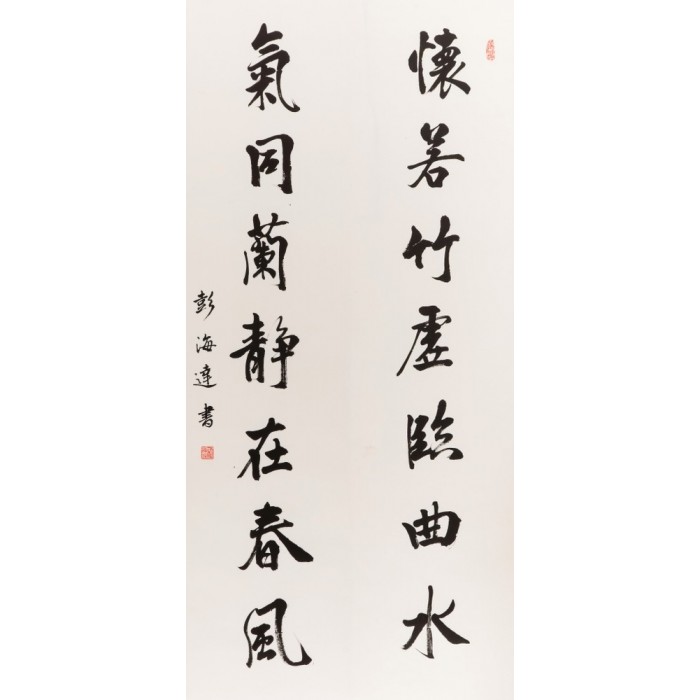 懷若竹虛臨曲水
氣同蘭靜在春風
彭海達書